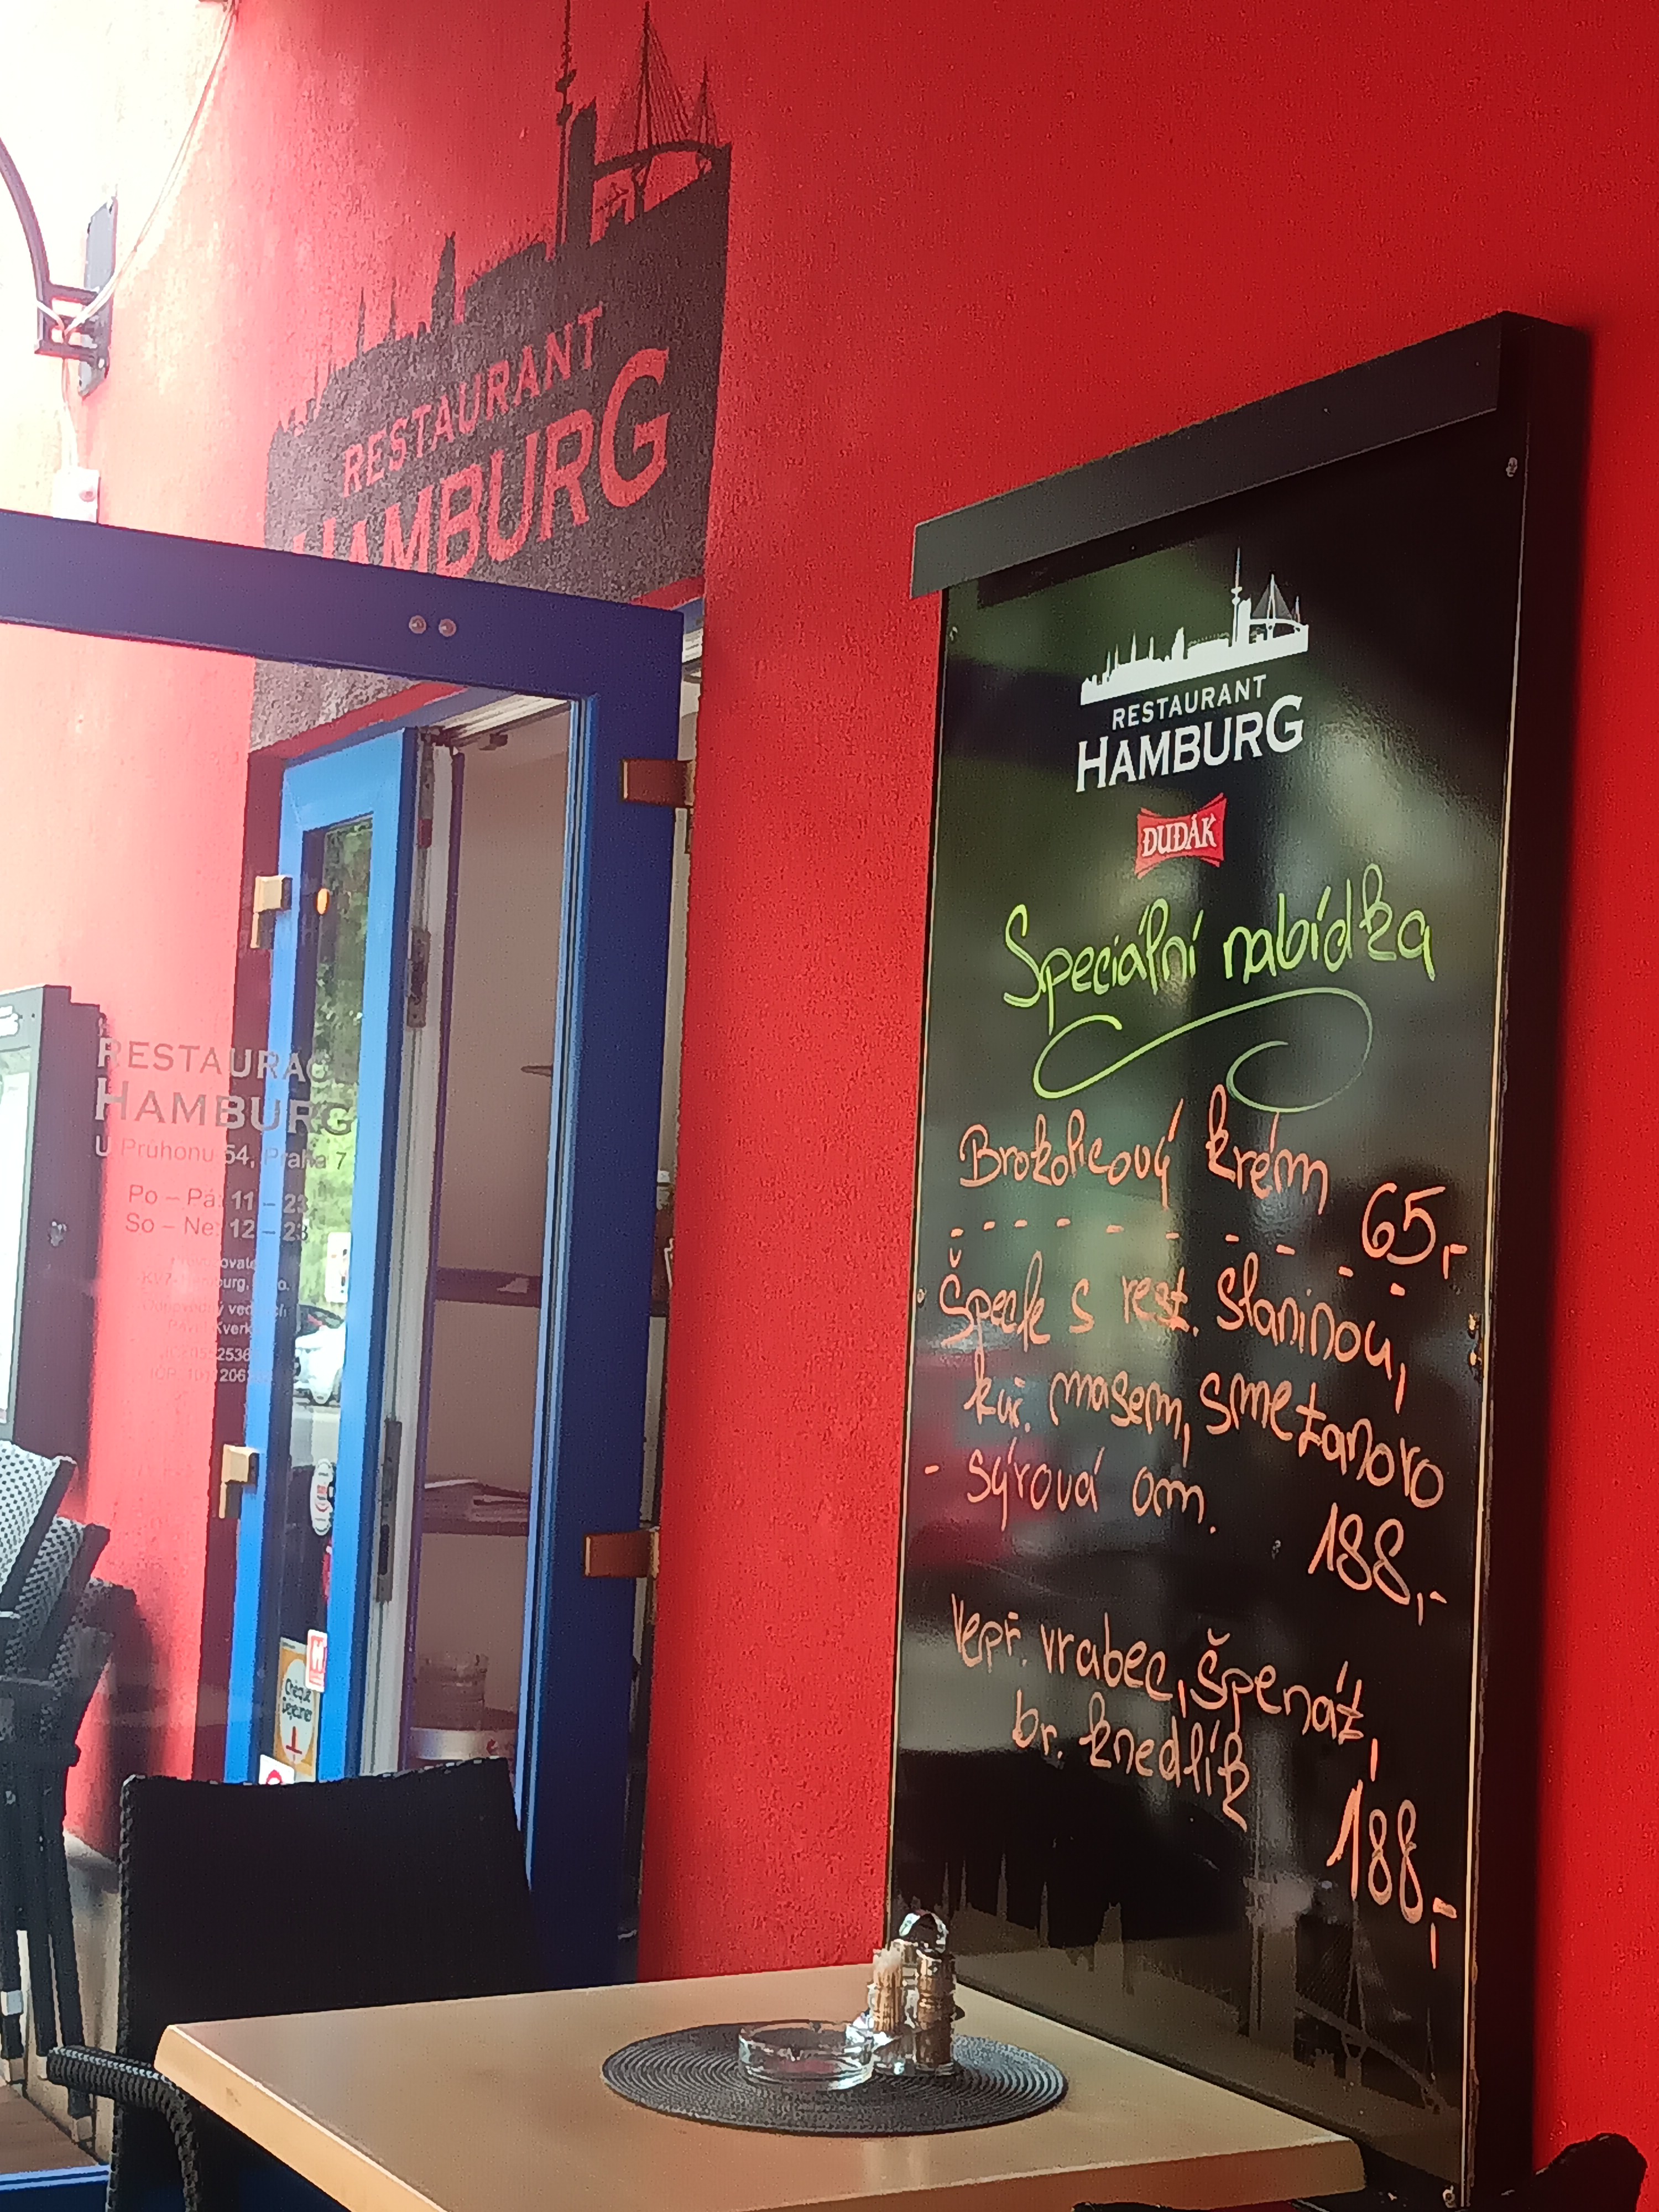 RESTAURANT
HAMBURG
RESTAURAC
HAMBURG
U Průhonu 54, Praha 7
Po – Pá: 11 – 23
So – Ne: 12 – 23
Chèque
Déjeuner
RESTAURANT
HAMBURG
DUDÁK
Speciální nabídka
Brokolicový krém
65,-
Špecle s rest. slaninou,
kuř. masem, smetanovo
- sýrová om.
188,-
Vepř. vrabec, špenát,
br. knedlík
188,-